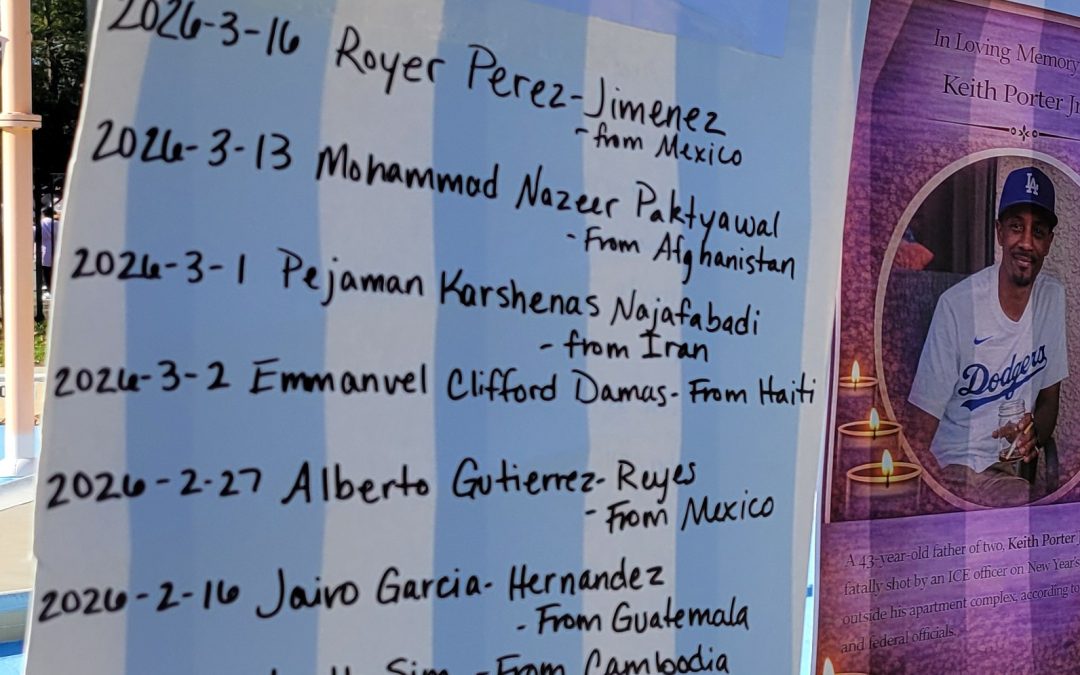 2026-3-16 Royer Perez-Jimenez
- from Mexico
2026-3-13 Mohammad Nazeer Paktyawal
- From Afghanistan
2026-3-1 Pejaman Karshenas Najafabadi
- from Iran
2026-3-2 Emmanuel Clifford Damas - From Haiti
2026-2-27 Alberto Gutierrez-Reyes
- From Mexico
2026-2-16 Jairo Garcia-Hernandez
- From Guatemala
Sim - From Cambodia
In Loving Memory
Keith Porter Jr
LA
Dodgers
A 43-year-old father of two, Keith Porter J
fatally shot by an ICE officer on New Year's
outside his apartment complex, according to
and federal officials.